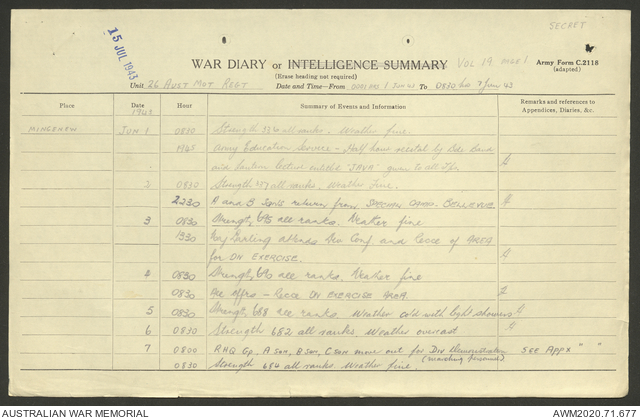 SECRET
15 JUL 1943
WAR DIARY or INTELLIGENCE SUMMARY VOL 19 PAGE 1
Army Form C.2118
(adapted)
(Erase heading not required)
Unit 26 AUST MOT REGT Date and Time—From 0001 hrs 1 Jun 43 To 0830 hrs 7 Jun 43
Place Date Hour Summary of Events and Information Remarks and references to Appendices, Diaries, &c.
MINGENEW JUN 1 0830 Strength all ranks. Weather fine.
1945 Army Education Service - Half hour recital by
and lantern lecture entitled "JAVA" given to all
2 0830 Strength all ranks. Weather Fine.
2230 A and B Sqns return from SPECIAL BELLEVUE
3 0830 Strength 695 all ranks. Weather fine
1330 attends Div Conf. and recce of AREA
for DN EXERCISE.
4 0830 Strength 690 all ranks. Weather fine
0830 All Offrs - Recce DN EXERCISE AREA.
5 0830 Strength 688 all ranks. Weather cold with light showers
6 0830 Strength 682 all ranks. Weather overcast
7 0800 RHQ Gp, A Sqn, B Sqn, C Sqn move out for Div Demonstration SEE APPX " "
(marching personnel)
0830 Strength 684 all ranks. Weather fine.
AUSTRALIAN WAR MEMORIAL
AWM2020.71.677